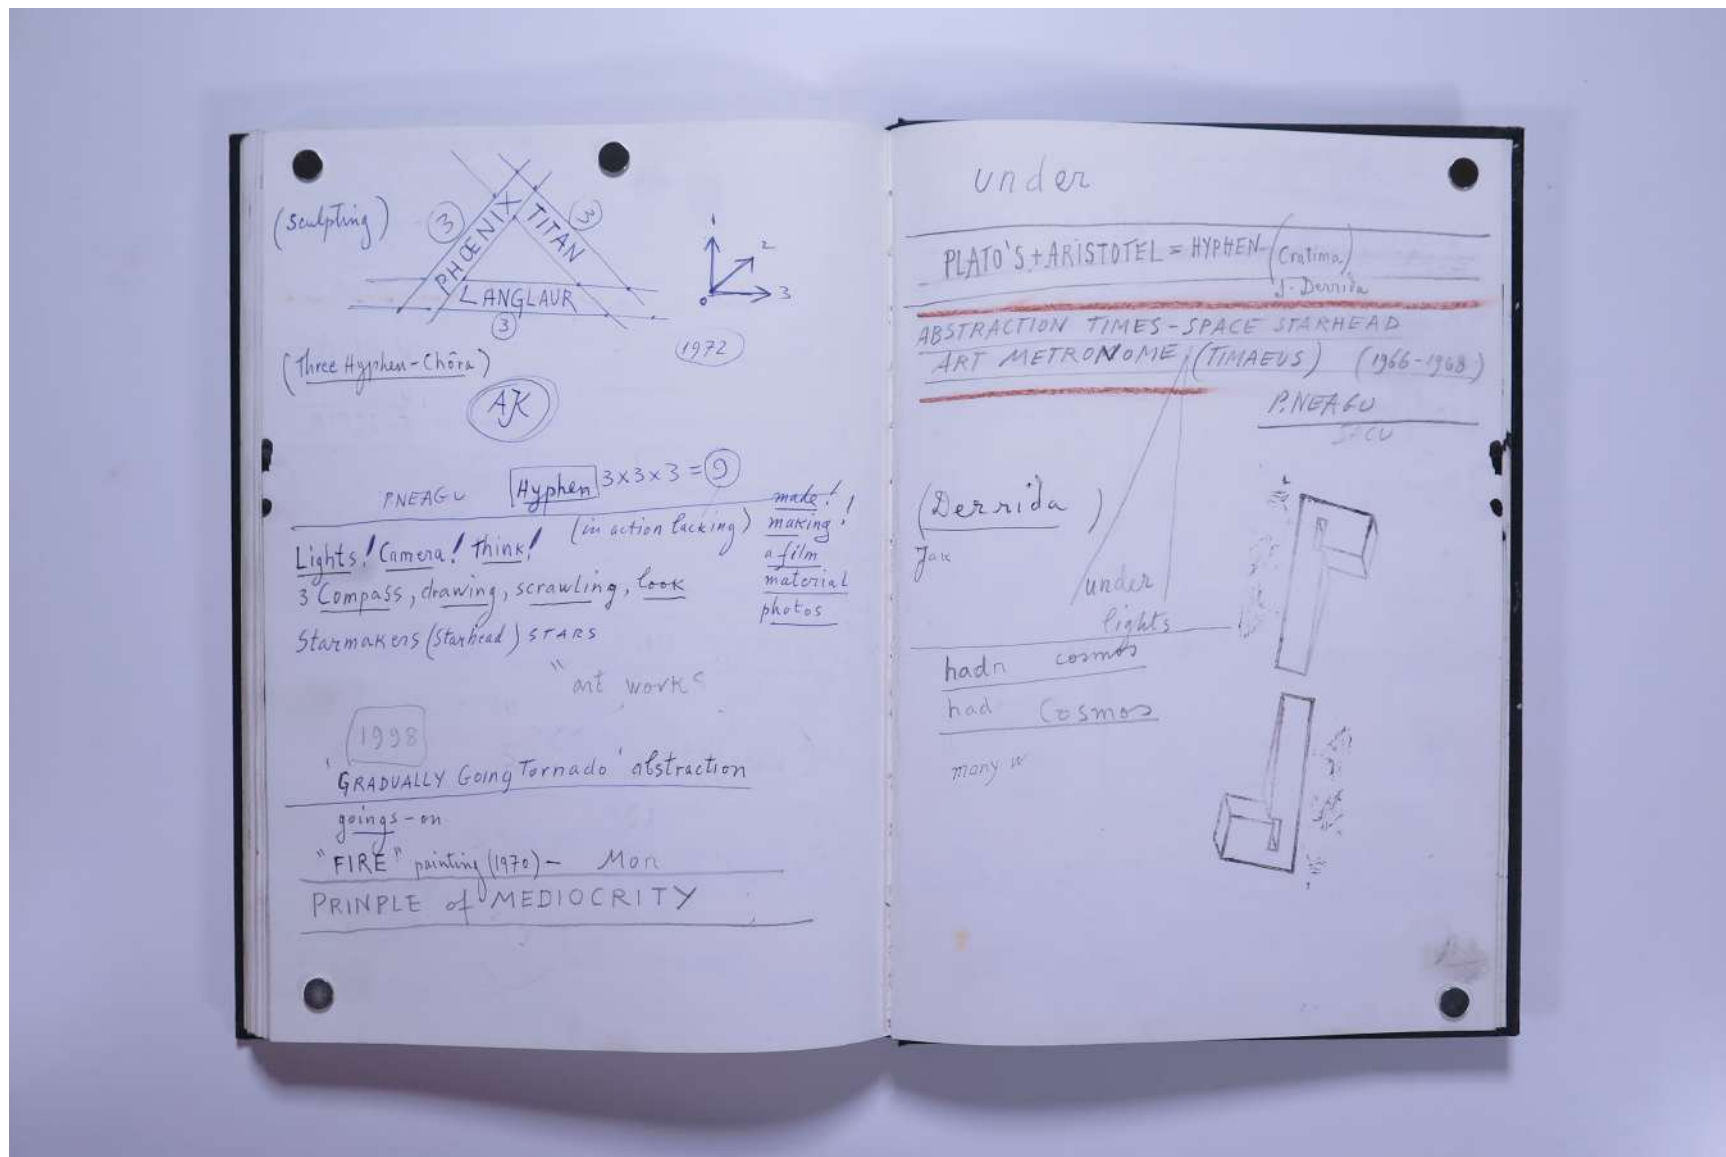 (sculpting)
3 PHOENIX
TITAN 3
LANGLAUR
3
1
2
0 3
1972
(Three Hyphen-Chôra)
AK
PNEAGU Hyphen 3x3x3=9
(in action lacking)
made!
making!
a film
material
photos
Lights! Camera! Think!
3 Compass, drawing, scrawling, look
Starmakers (Starhead) STARS
"art works
1998
'GRADUALLY Going Tornado' abstraction
goings-on
"FIRE" painting (1970) - Mon
PRINPLE of MEDIOCRITY
under
PLATO'S + ARISTOTEL = HYPHEN-(Cratima)
J. Derrida
ABSTRACTION TIMES-SPACE STARHEAD
ART METRONOME (TIMAEUS) (1966-1968)
P.NEAGU
(Derrida)
under
lights
hadn cosmos
had Cosmos
many w